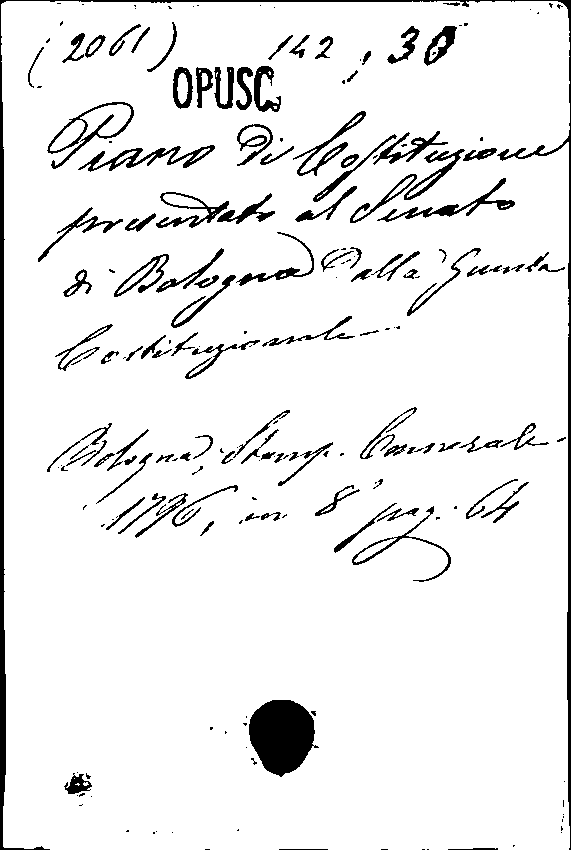 (2061) 142, 30
OPUSC.
Piano di Costituzione
presentato al Senato
di Bologna Dalla Giunta
Costituzionale.
Bologna, Stamp. Camerale.
1796, in 8° pag. 64